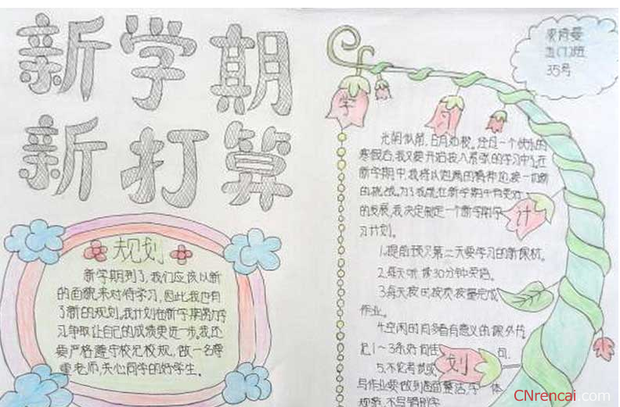 新学期
新打算
规划
新学期到了,我们应该以新
的面貌来对待学习,因此,我也有
了新的规划。我计划在新学期努力学
习争取让自己的成绩更进一步。我还
要严格遵守校纪校规,做一名尊
重老师,关心同学的好学生。
五(7)班
35号
学
习
计
划
光阴似箭,日月如梭。经过一个快乐的
寒假后,我又要开始投入紧张的学习中了。在
新学期中,我将以饱满的精神迎接一切新
的挑战。为了我能在新学期中有更好
的发展,我决定制定一个新学期学
习计划。
1.提前预习第二天要学习的新课材。
2.每天听读30分钟英语。
3.每天按时按质按量完成
作业。
4.空闲时间多看有意义的课外书,
5.不
写作业要做到
规范
CNrencai.com